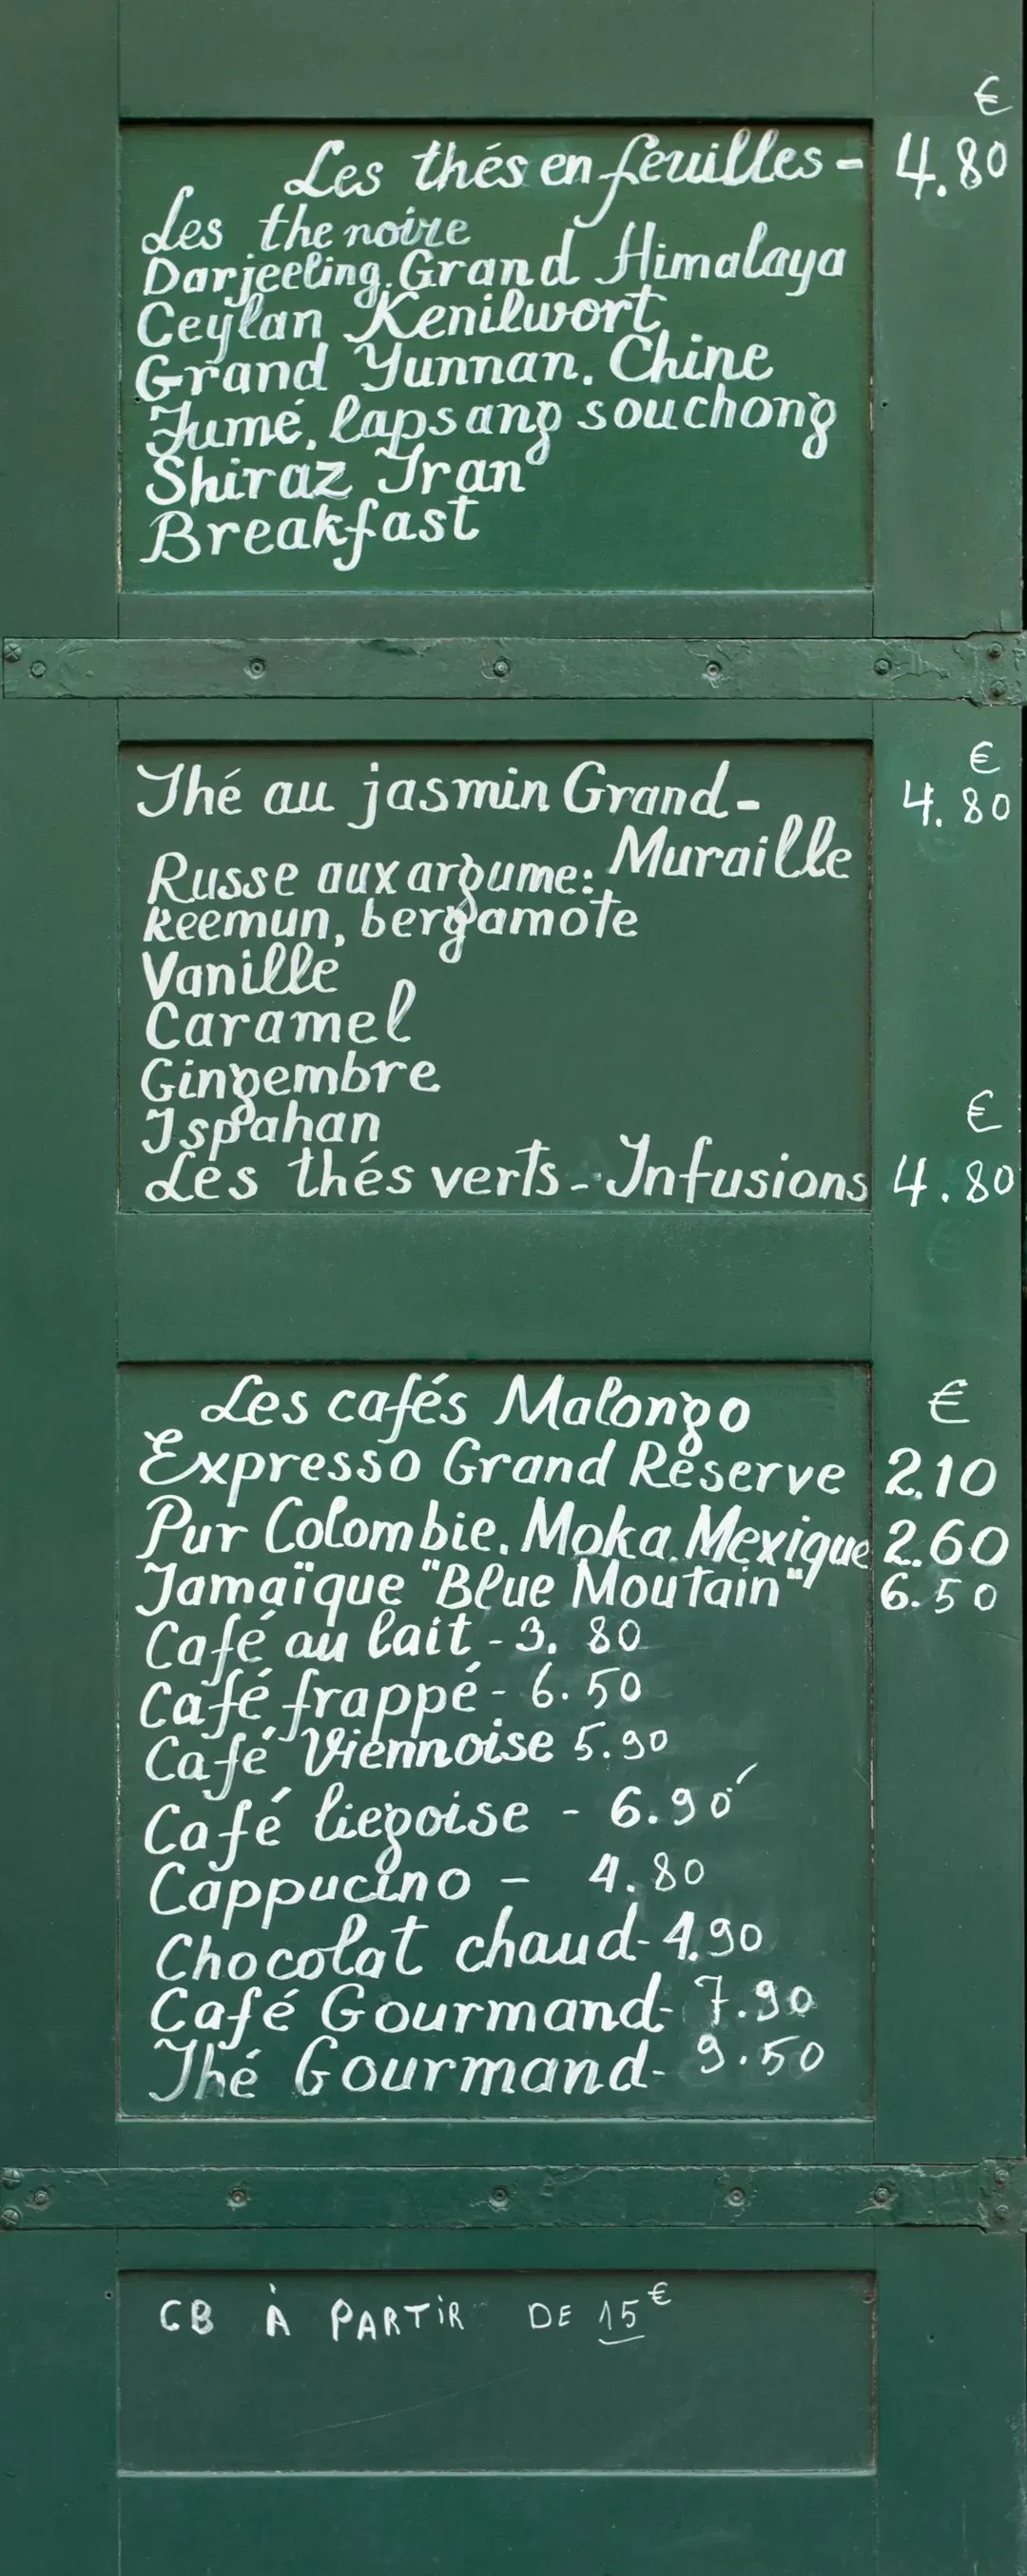 €
Les thés en feuilles - 4.80
Les the noire
Darjeeling. Grand Himalaya
Ceylan Kenilwort
Grand Yunnan. Chine
Fumé, lapsang souchong
Shiraz Iran
Breakfast
€
Thé au jasmin Grand- 4.80
Muraille
Russe aux argume:
keemun, bergamote
Vanille
Caramel
Gingembre
Ispahan
€
Les thés verts - Infusions 4.80
Les cafés Malongo €
Expresso Grand Réserve 2.10
Pur Colombie. Moka Mexique 2.60
Jamaïque "Blue Moutain" 6.50
Café au lait - 3. 80
Café frappé - 6.50
Café Viennoise 5.90
Café liegoise - 6.90
Cappucino - 4.80
Chocolat chaud - 4.90
Café Gourmand - 7.90
Thé Gourmand - 9.50
CB À PARTiR DE 15€